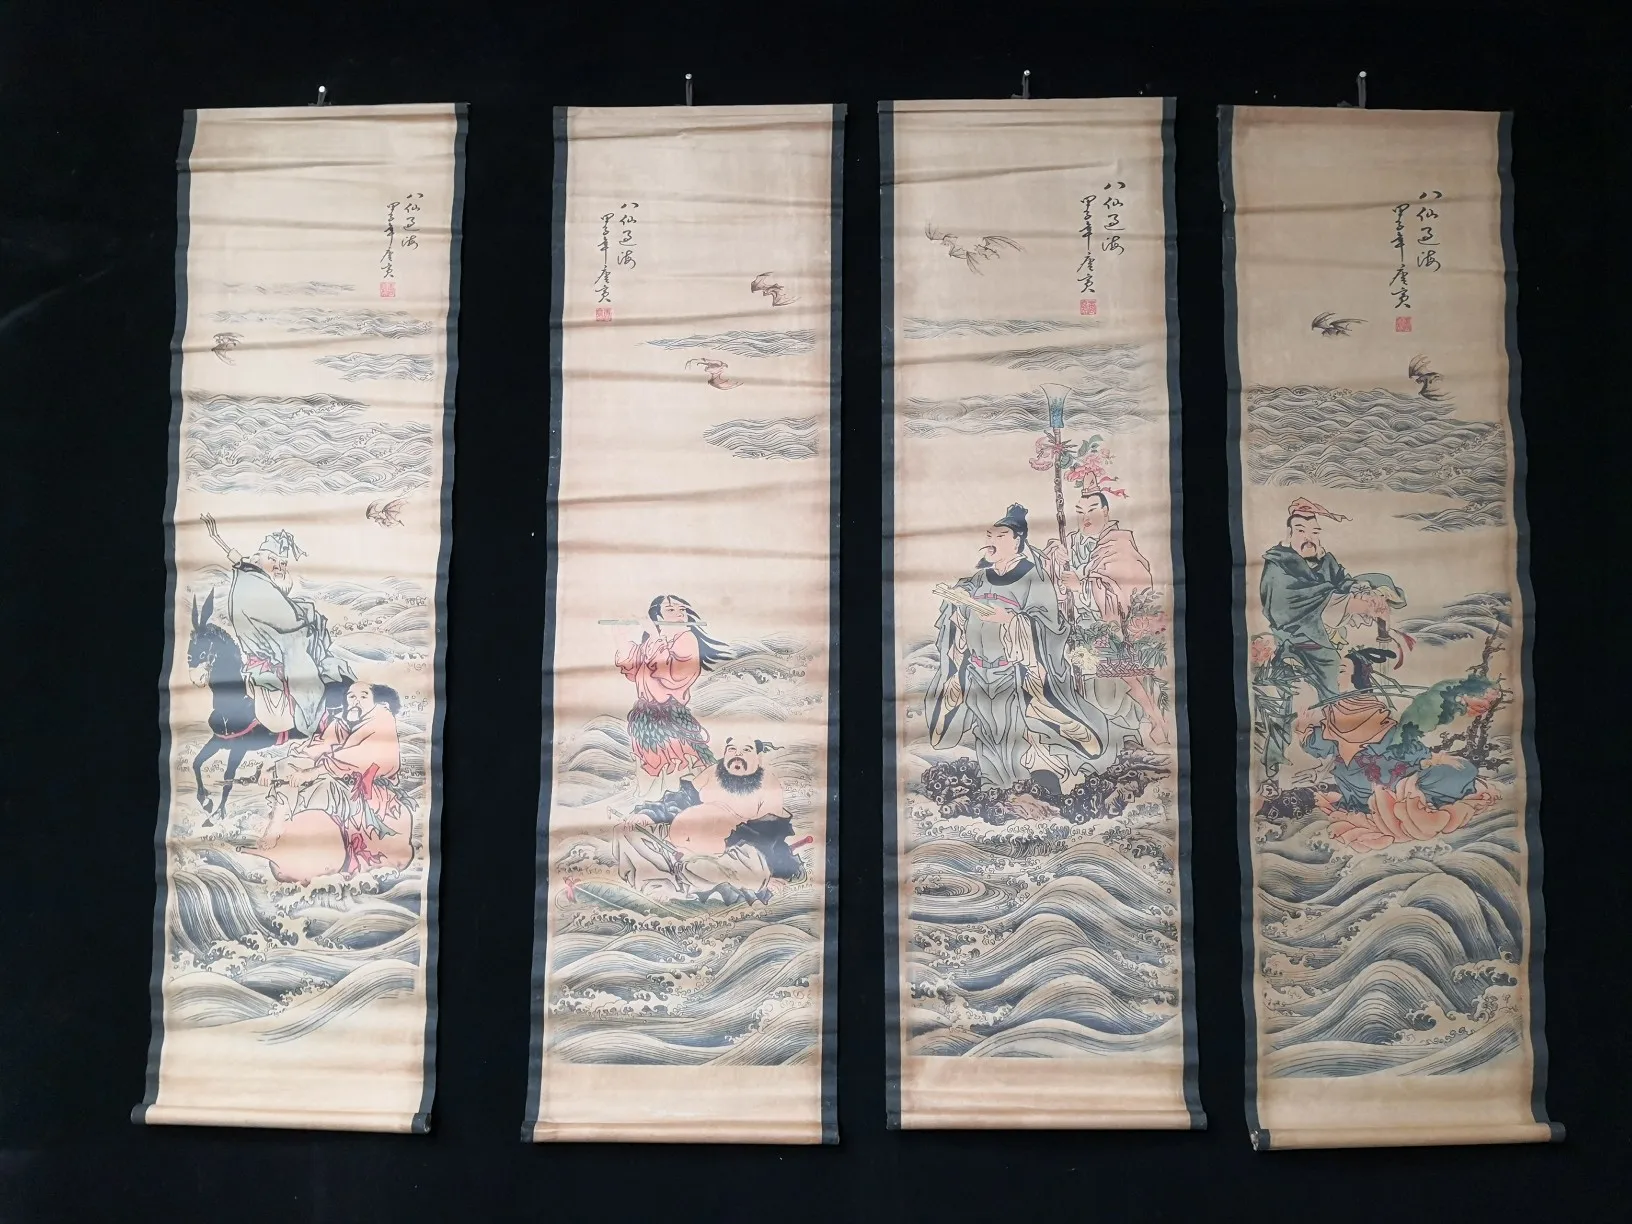 八仙過海
甲子年唐寅
八仙過海
甲子年唐寅
八仙過海
甲子年唐寅
八仙過海
甲子年唐寅